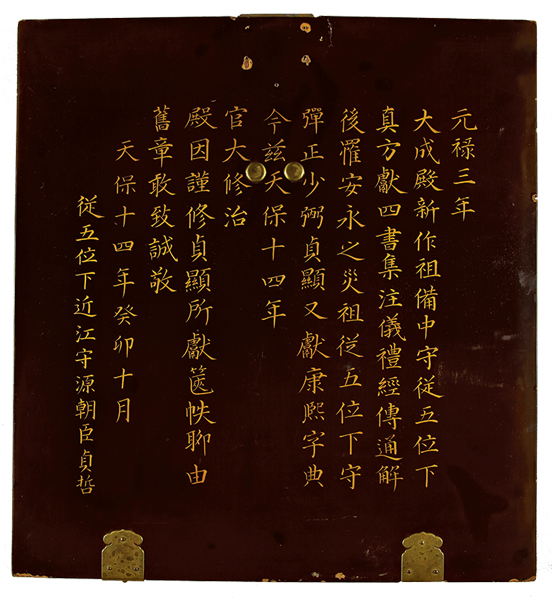 元禄三年
大成殿新作祖備中守従五位下
真方獻四書集注儀禮經傳通解
後罹安永之災祖従五位下守
彈正少弼貞顯又獻康熙字典
今茲天保十四年
官大修治
殿因謹修貞顯所獻篋帙聊由
舊章敢致誠敬
天保十四年癸卯十月
従五位下近江守源朝臣貞哲